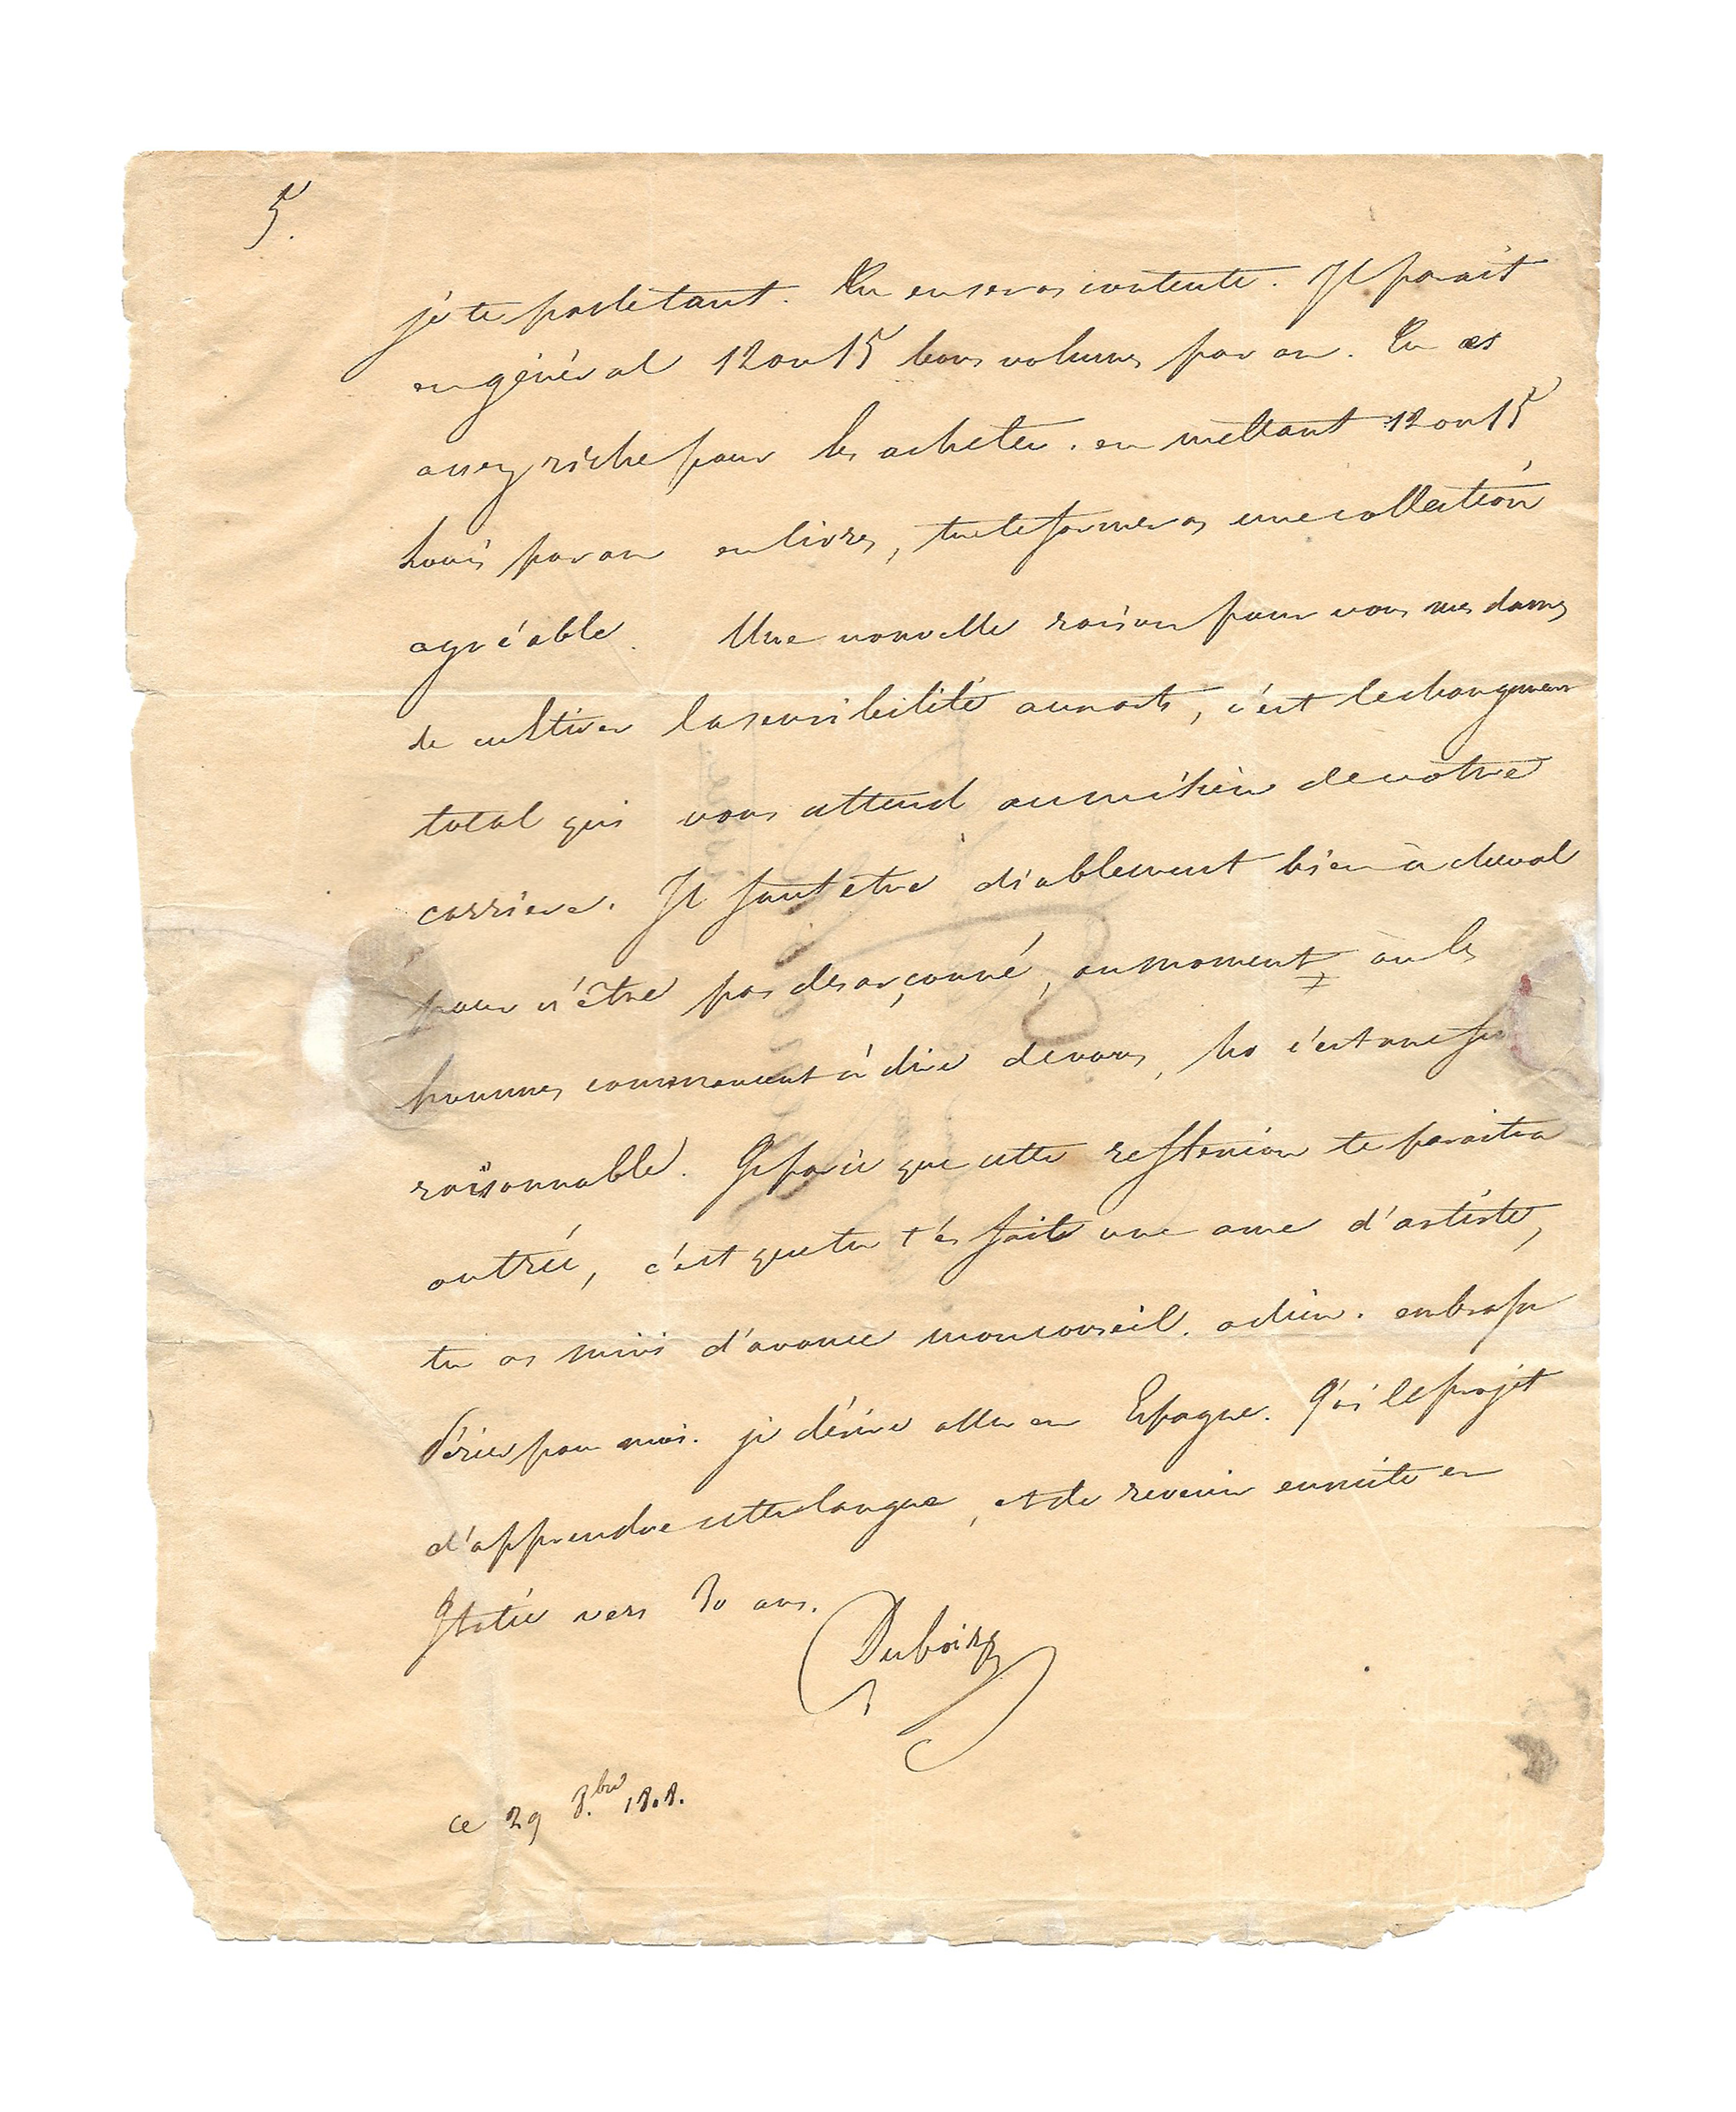 5.
je te parle tant. Tu en seras contente. Il parait
en général 12 ou 15 bons volumes par an. Tu es
assez riche pour les acheter. en mettant 12 ou 15
Louis par an en livres, tu te formeras une collection
agréable. Une nouvelle raison pour vous mesdames
de cultiver la sensibilité aux arts, c'est le changement
total qui vous attend au milieu de votre
carriere. Il faut etre diablement bien à cheval
pour n'être pas desarçonné, au moment où les
hommes commencent à dire de vous, ha c'est une fe
raisonnable. Je parie que cette reflexion te paraitra
outrée, c'est que tu t'es faite une ame d'artiste,
tu as suivi d'avance mon conseil. adieu. embrasse
Périer pour moi. je désire aller en Espagne. J'ai le projet
d'apprendre cette langue, et de revenir ensuite en
Italie vers 30 ans.
Dubois
ce 29 8.bre 1808.